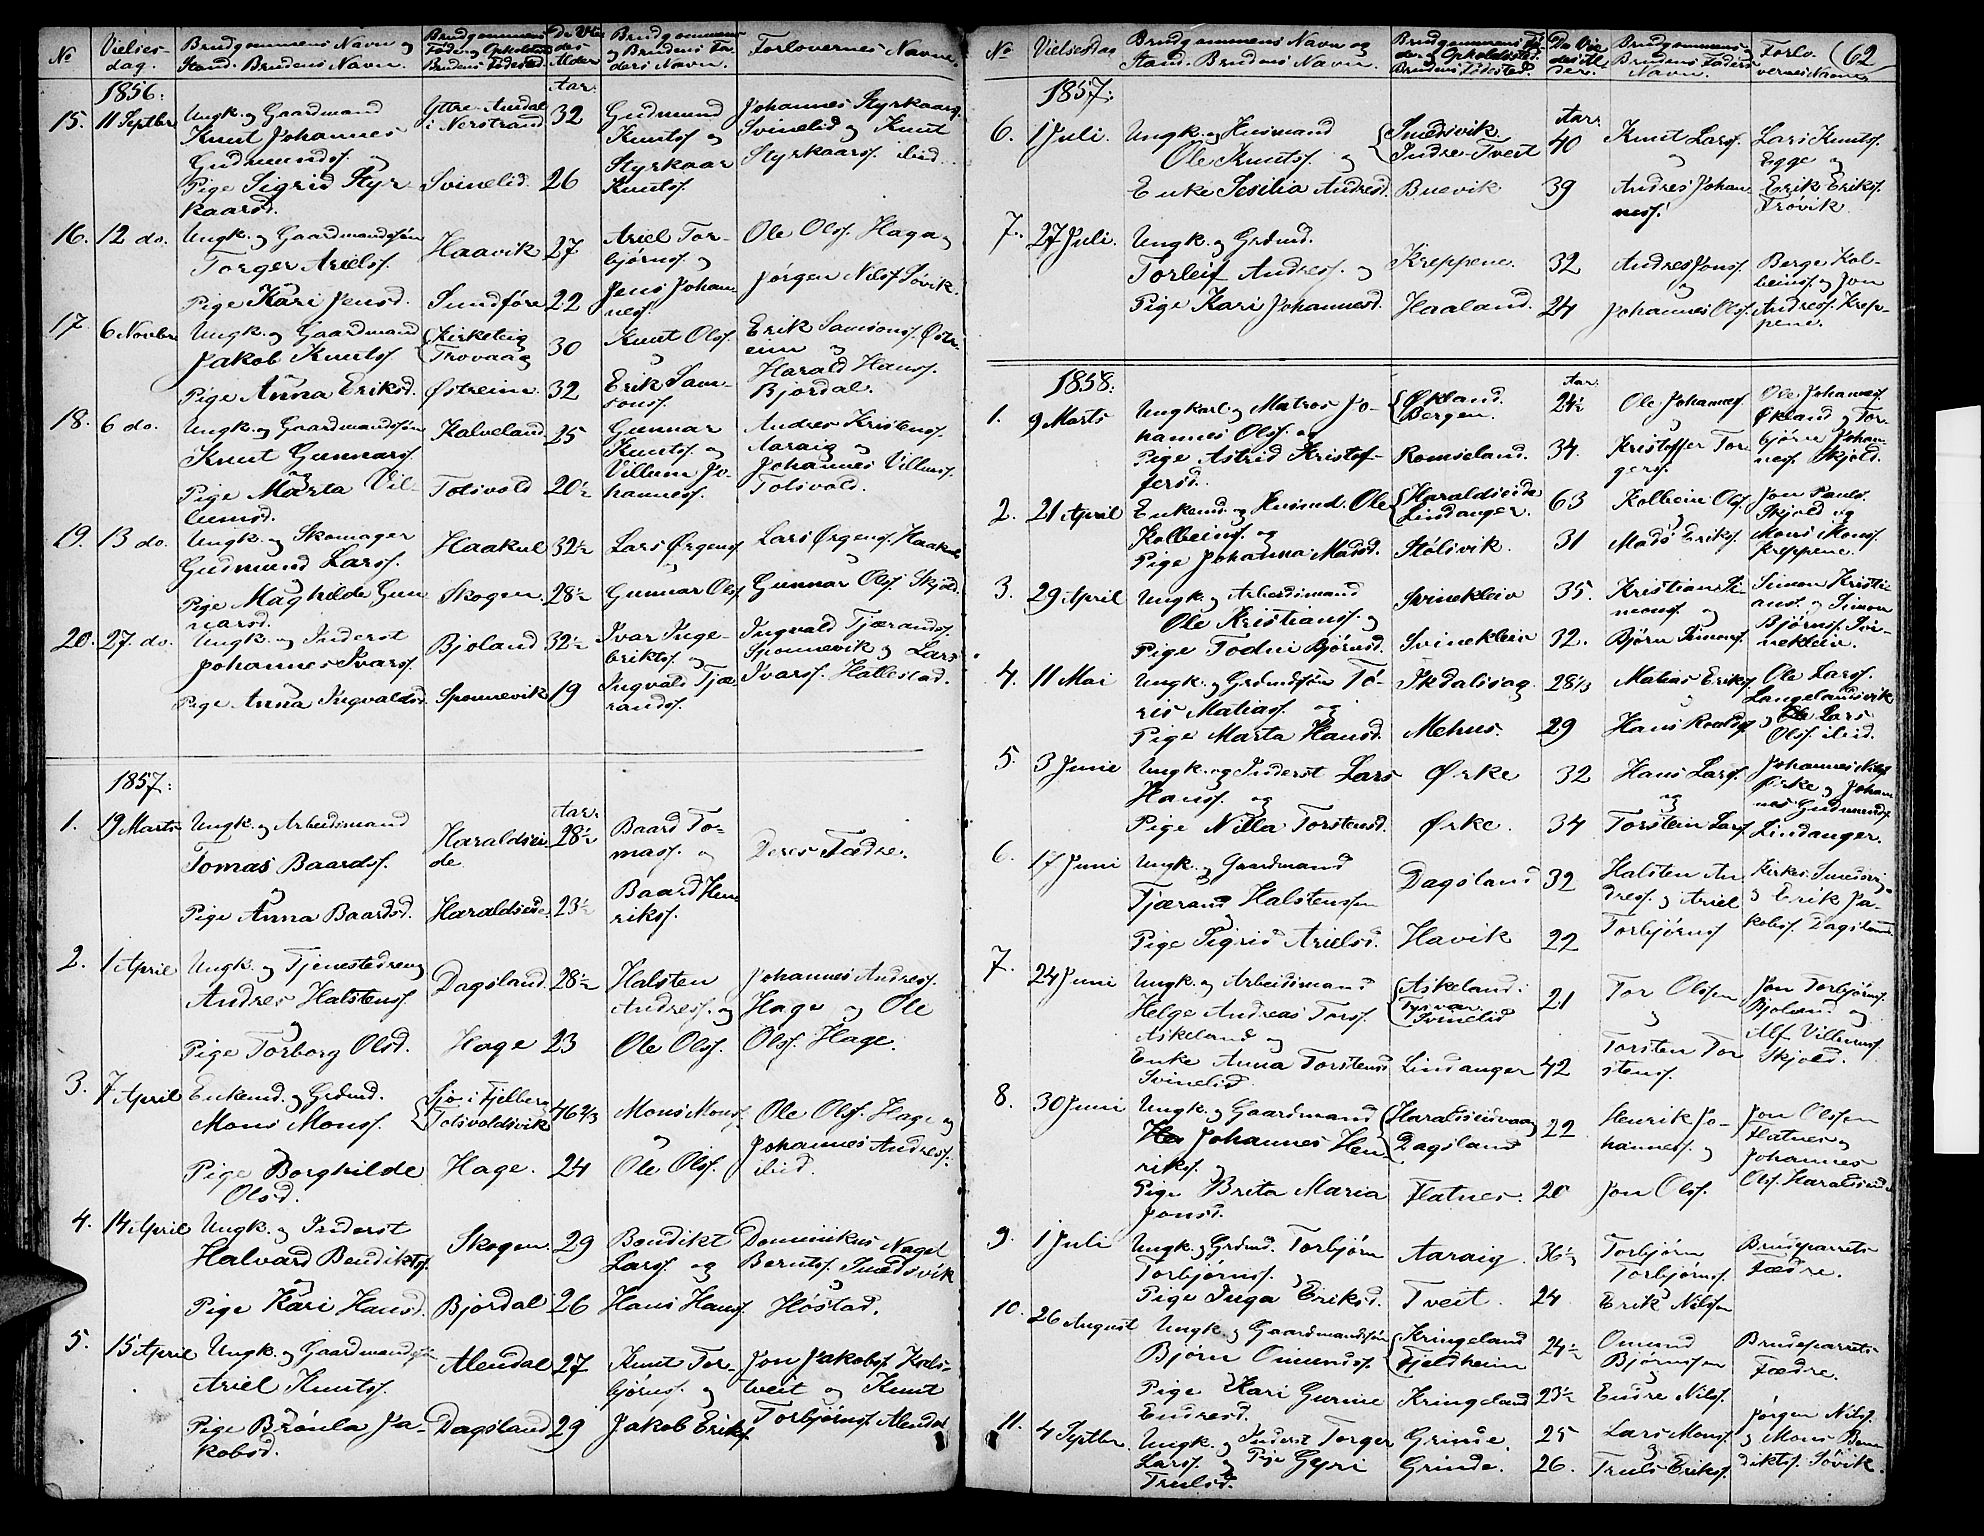 No
Vielses-
dag.
Brudgommens Navn og
Stand. Brudens Navn.
Brudgommens
Føde og Opholdsted
Brudens Fødested
De Vie
des
Alder
Brudgommens
og Brudens Fa-
ders Navn.
Forlovernes Navne.
1856:
Aar.
15. 11 Septbr
Ungk. og Gaardmand
Knut Johannes
Gudmunds. og
Yttre-Amdal
i Nerstrand
32
Gudmund
Knuts. og
Johannes Styrkaars.
Svinelid og Knut
Styrkaars. ibid.
Pige Sigrid Styr
kaarsd.
Svinelid.
26
Styrkaar
Knuts.
16. 12 do.
Ungk. og Gaardmandssøn
Torger Ariels.
og
Haavik
27
Ariel Tor-
bjørns. og
Ole Ols. Haga og
Pige Kari Jensd.
Sundføre
22
Jens Johan-
nes.
Jørgen Nils. Søvik.
17. 6 Novbr
Ungk. og Gaardmand
Jakob Knuts.
og
Kirketeig
Trovaag
30
Knut Ols.
og
Erik Samsons. Øst-
reim og
Pige Anna Eriksd.
Østreim.
32
Erik Sam-
sons.
Harald Hans.
Bjordal.
18. 6 do.
Ungk. og Gaardmandssøn
Knut Gunnars.
og
Kalveland
25
Gunnar
Knuts. og
Andres Kristens.
Aaraig og
Pige Marta Vil-
lumsd.
Tolsvold
20½
Villum Jo-
hannes.
Johannes Villums.
Tolsvold.
19. 13 do.
Ungk. og Skomager
Gudmund Lars.
og
Haakul
32½
Lars Ørgens.
og
Lars Ørgens. Haakul
Pige Maghilde Gun
narsd.
Skogen.
28½
Gunnar Ols.
Gunnar Ols. Skjold.
20. 27 do.
Ungk. og Inderst
Johannes Ivars.
og
Bjoland
32½
Ivar Inge-
brikts. og
Ingvald Tjærands.
Sponnevik og Lars
Pige Anna Ingvaldsd.
Sponnevik
19
Ingvald Tjæ-
rands.
Ivars. Hallestad.
1857:
Aar.
1. 19 Marts
Ungk. og Arbeidsmand
Tomas Baards.
og
Haraldsei
de
28½
Baard To-
mas. og
Deres Fædre.
Pige Anna Baardsd.
Haraldseide.
23½
Baard Hen
riks.
2. 1 April
Ungk. og Tjenestedreng
Andres Halstens.
og
Dagsland
28½
Halsten
Andres. og
Johannes Andres.
Hage og Ole
Pige Torborg Olsd.
Hage
23
Ole Ols.
Ols. Hage.
3. 7 April
Enkemd. og Grdmd.
Mons Mons.
Sjo i Fjelberg
Tolsvoldsvik
46⅔
Mons Mons.
og
Ole Ols. Hage og
Pige Borghilde
Olsd.
Hage.
24
Ole Ols.
Johannes Andres.
ibid.
4. 14 April
Ungk. og Inderst
Halvard Bendikts.
og
Skogen.
29
Bendikt
Lars. og
Dominikus Nagel
Bernts. Smedsvik
og
Pige Kari Hansd.
Bjordal
26
Hans Hans.
Høstad.
5. 15 April
Ungk. og Gaardmandssøn
Ariel Knuts.
Alendal
27
Knut Tor-
bjørns. og
Jon Jakobs. Kals-
tveit og Knut
Pige Brønla Ja-
kobsd.
Dagsland
29
Jakob Eriks.
Torbjørns. Alendal
No
Vielsesdag
Brudgommens Navn og
Stand. Brudens Navn.
Brudgommens Fø-
de- og Opholdssted.
Brudens Fødested.
De Vie
des Al-
der.
Brudgommens og
Brudens Faders
Navn.
Forlo-
vernes Navne
62
1857:
Aar.
6. 1 Juli.
Ungk. og Husmand
Ole Knuts. og
Smedsvik.
Indre-Tveit
40
Knut Lars.
og
Lars Knuts.
Egge og
Enke Sesilia Andresd.
Buevik
39
Andres Johan-
nes.
Erik Eriks.
Frøvik.
7. 27 Juli.
Ungk. og Grdmd.
Torleif Andres. og
Kreppene.
32
Andres Jons.
og
Berge Kol-
beins. og Jon
Pige Kari Johannesd.
Haaland.
24
Johannes Ols.
Andres. Krep-
pene.
1858:
Aar.
1. 9 Marts
Ungkarl og Matros Jo-
hannes Ols. og
Økland.
Bergen.
24½
Ole Johannes.
Ole Johannes.
Økland og Tor-
Pige Astrid Kristof-
fersd.
Romseland.
34.
Kristoffer Tor-
gers.
bjørn Johan-
nes. Skjold.
2. 21 April
Enkemd. og Husmd. Ole
Kolbeins. og
Haraldseide
Lindanger.
63
Kolbein Ols.
og
Jon Pauls.
Skjold og
Pige Johanna Madsd.
Stølsvik.
31
Mads Eriks.
Mons Mons.
Kreppene.
3. 29 April
Ungk. og Arbeidsmand
Ole Kristians. og
Svinekleiv
35.
Kristian Si-
mons. og
Simon Kristi-
ans. og Simon
Pige Todne Bjørnsd.
Svinekleiv
32.
Bjørn Simons.
Bjørns. Svi-
nekleiv.
4. 11 Mai
Ungk. og Grdmdssøn To-
ris Matias. og
Skdalsaag
28⅓
Matias Eriks.
og
Ole Lars.
Langelandsvik
Pige Marta Hansd.
Mehus.
29
Hans Roalds.
og Ole Lars
Ols. ibid.
5. 3 Junie
Ungk. og Inderst Lars
Hans. og
Ørke
32
Hans Lars.
og
Johannes Nils.
Ørke og Johan-
nes Gudmunds.
Pige Nilla Torstensd.
Ørke.
34
Torstein Lars.
Lindanger.
6. 17 Juni
Ungk. og Gaardmand
Tjærand Halstensen
og
Dagsland
32
Halsten An
dres. og Ariel
Pige Sigrid Arielsd.
Havik
22
Torbjørns.
og Erik Ja-
kobs. Dagsland.
7. 24 Juni
Ungk. og Arbeidsmand
Helge Andreas Tors.
Askeland og
Askeland i
Tysvær.
Svinelid
21
Tor Olsen
og
Jon Torbjørns.
Bjoland og
Enke Anna Torstensd.
Svinelid.
Lindanger
42
Torsten Tor
stens.
Alf Villums.
Skjold.
8. 30 Juni
Ungk. og Gaardmand
Johannes Hen
riks. og
Haraldseidvaag
Dagsland
22
Henrik Jo-
hannes. og
Jon Olsen
Flatnes og
Pige Brita Maria
Jonsd.
Flatnes.
20
Jon Ols.
Johannes
Ols. Haraldseide
9. 1 Juli
Ungk. og Grdmd. Torbjørn
Torbjørns. og
Aaraig.
36½
Torbjørn
Torbjørns.
Brudeparrets
Fædre.
Pige Inga Eriksd.
Tveit.
24
Erik Nilsen
10. 26 August
Ungk. og Gaardmandssøn
Bjørn Omunds.
og
Kringeland
Fjeldheim
24½
Omund
Bjørnsen
Brudeparrets
Fædre.
Pige Kari Gurine
Endresd.
Kringeland
23½
Endre Nils.
11. 4 Septbr.
Ungk. og Inderst Torger
Lars. og Pige Gyri
Trulsd.
Grinde.
Grinde.
25
26.
Lars Mons.
og
Truls Eriks.
Jørgen Nils.
og Mons Ben
dikts. Søvik.